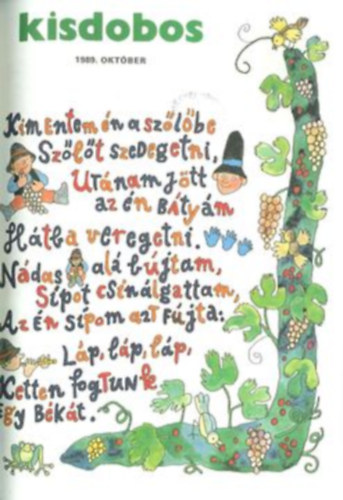 kisdobos
1989. OKTÓBER
Kimentem én a szőlőbe
Szőlőt szedegetni,
Utánam jött
az én Bátyám
Hátba veregetni.
Nádas alá bújtam,
Sípot csinálgattam,
Az én sípom azt fújta:
Láp, láp, láp,
Ketten fogtunk
Egy Békát.